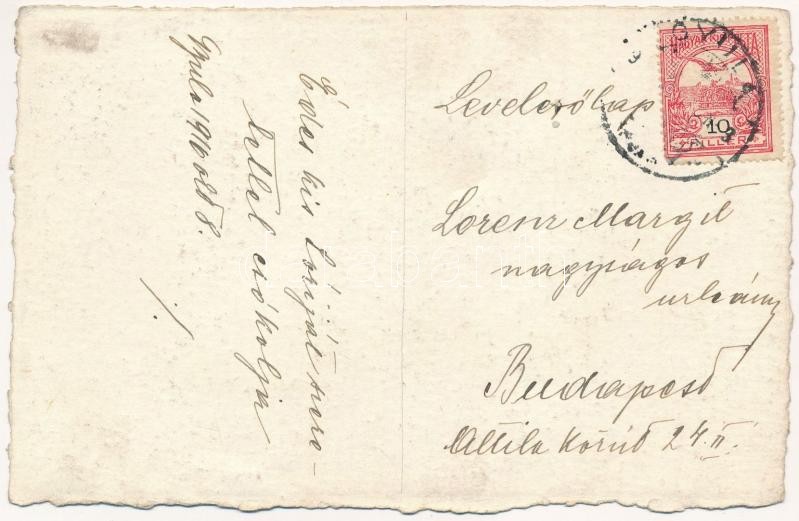 Édes kis Lórijját szere-
tettel csókolja
I.
Gyula 1916 okt 8.
Levelezőlap
Lorenz Margit
nagyságos
urleány
Budapest
Attila körút 24. II.
MAGYAR KIR. POSTA
10
FILLÉR